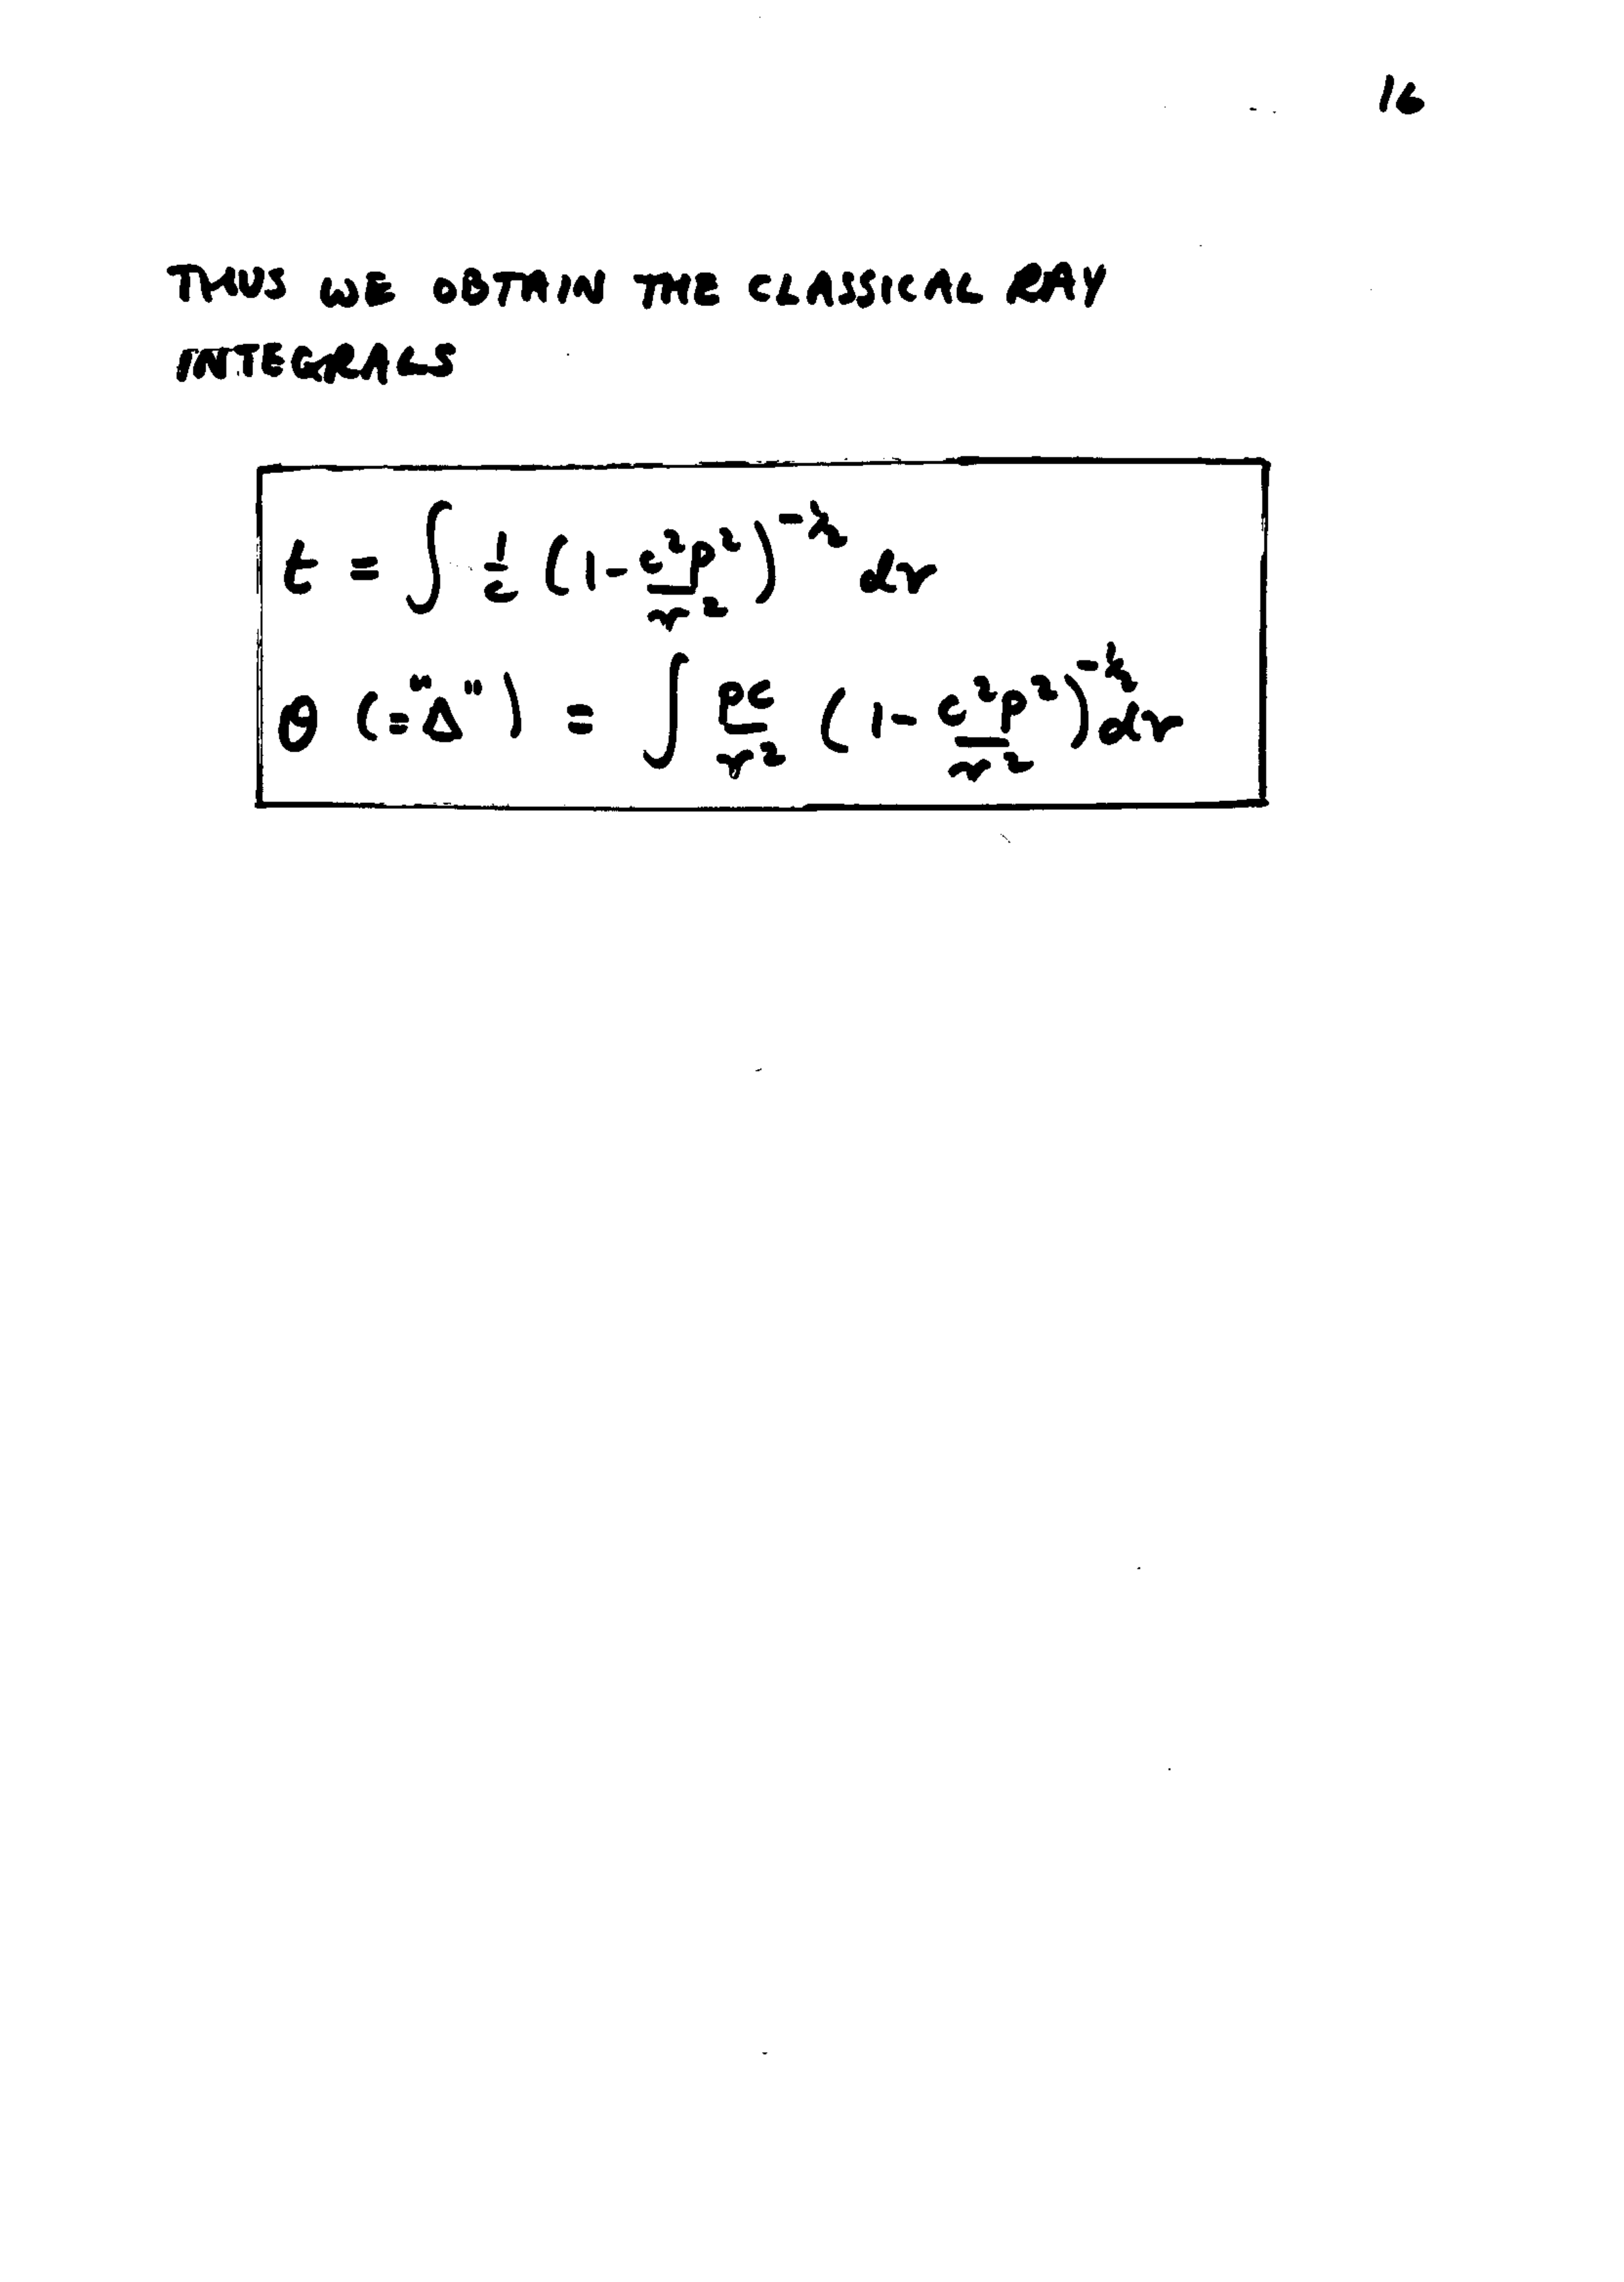 16
THUS WE OBTAIN THE CLASSICAL RAY
INTEGRALS
t = ∫ 1/c (1 - c²p²/r²)^(-1/2) dr
θ (= "Δ") = ∫ pc/r² (1 - c²p²/r²)^(-1/2) dr